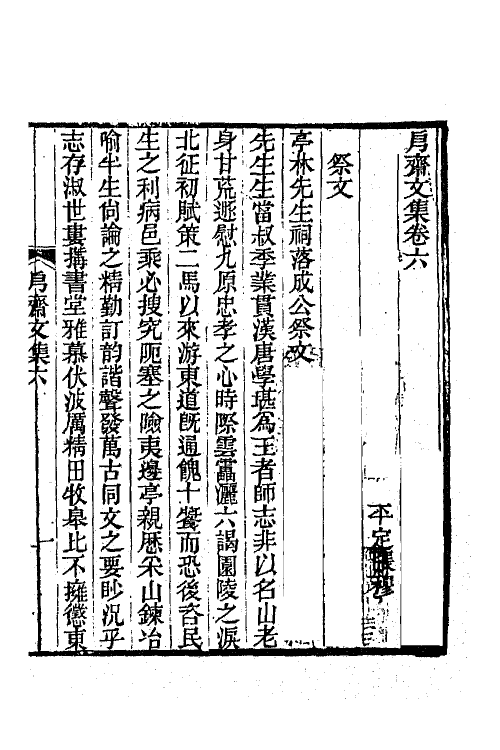 㐆齋文集卷六
平定張穆
祭文
亭林先生祠落成公祭文
先生生當叔季業貫漢唐學堪為王者師志非以名山老
身甘荒遯慰九原忠孝之心時際雲靁灑六謁園陵之淚
北征初賦策二馬以來游東道旣通餽十䊝而恐後咨民
生之利病邑乘必搜究阨塞之險夷邊亭親歷采山鍊冶
喻半生尙論之精勤訂韵諧聲發萬古同文之要眇況乎
志存淑世婁搆書堂雅慕伏波厲精田牧皋比不擁懲東
㐆齋文集六
一